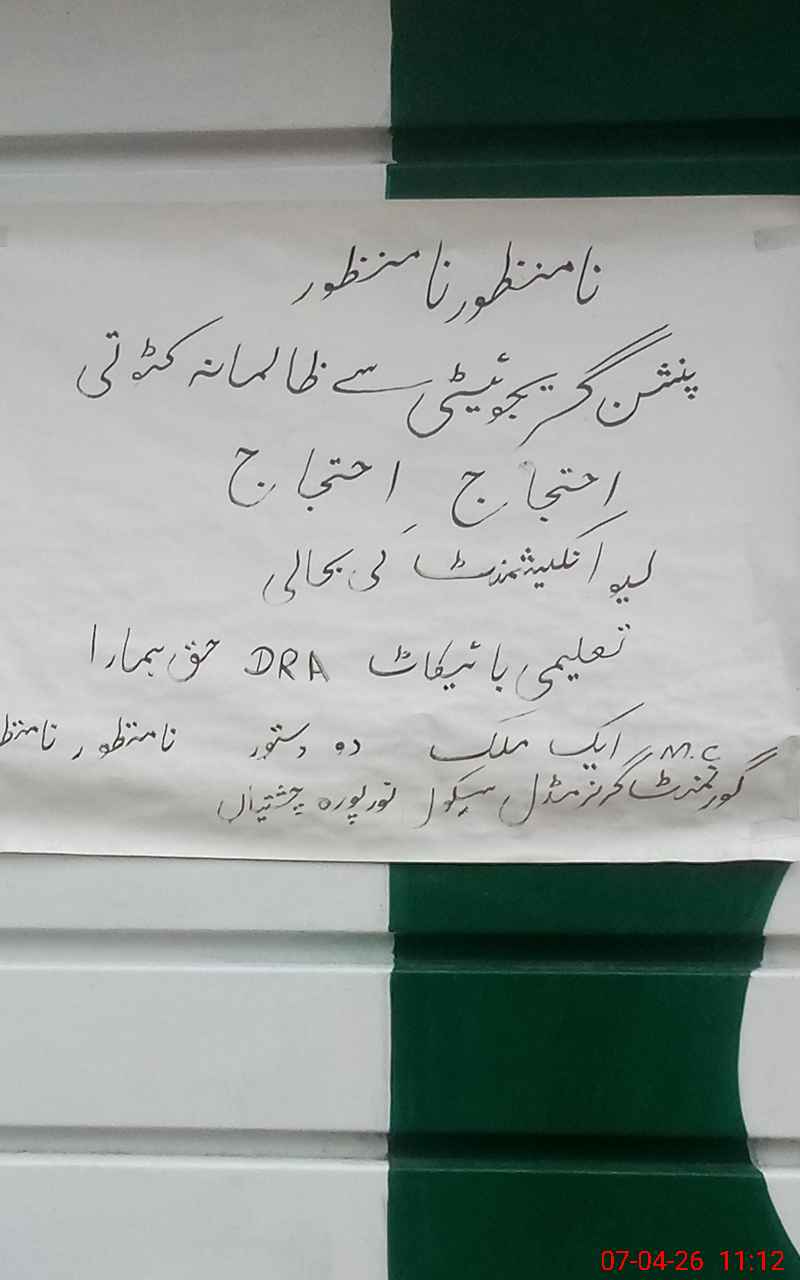 نامنظور نامنظور
پنشن گریجوئیٹی سے ظالمانہ کٹوتی
احتجاج احتجاج
لیو انکیشمنٹ کی بحالی
تعلیمی بائیکاٹ DRA حق ہمارا
ایک ملک دو دستور نامنظور نامنظ
M.C
گورنمنٹ گرلز مڈل سکول نورپورہ چشتیاں
07-04-26 11:12